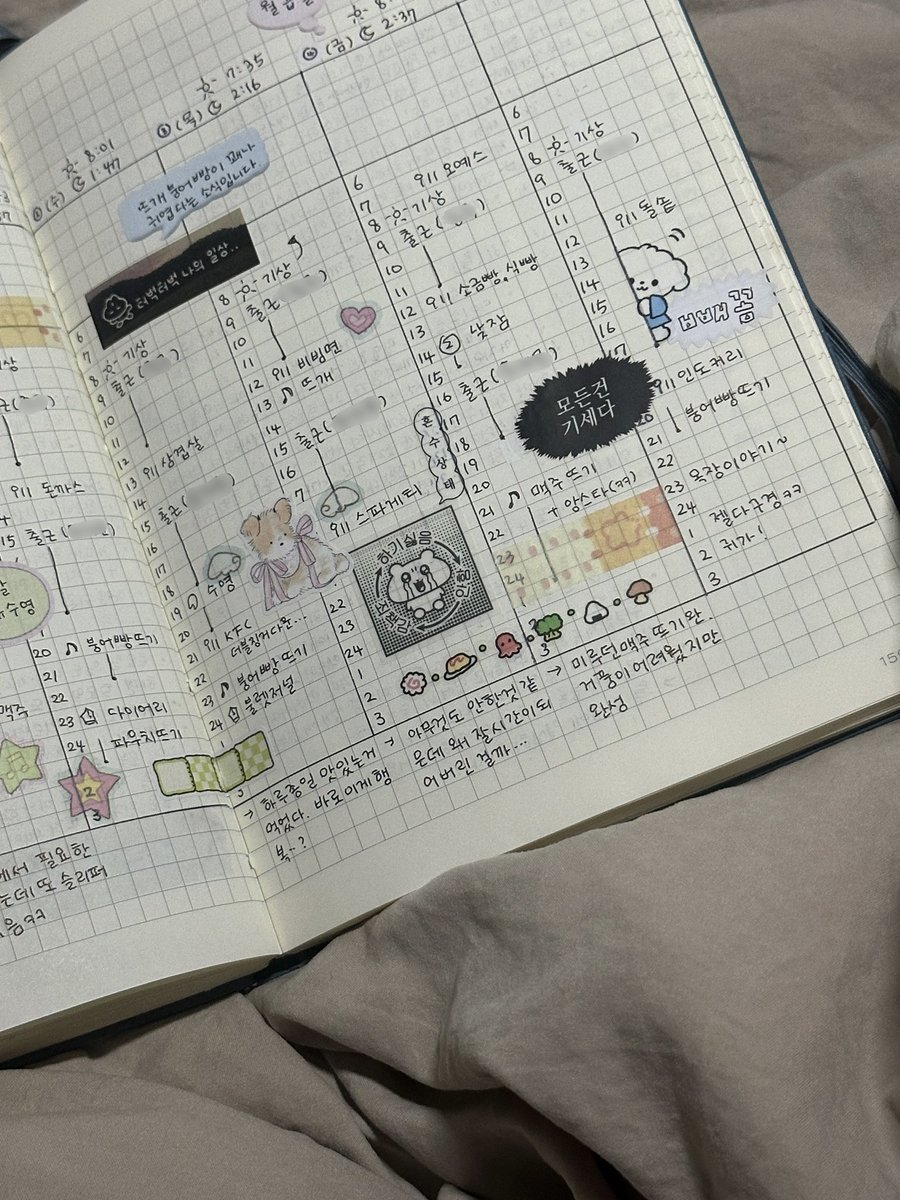 8:01
(수) 1:47
7:35
(목) 2:16
(금) 2:37
뜨개 붕어빵이 꽤나
귀엽다는 소식입니다
터벅터벅 나의 일상..
출근(
돈까스
15 출근(
수영
20 붕어빵 뜨기
21
22
맥주
23 다이어리
24 파우치뜨기
2
3
6
7
8 기상
9 출근(
10
11
12 식사 삼겹살
13
14
15 출근(
16
17
18
19 수영
20
21 KFC
22
23 붕어빵 뜨기
24 불렛저널
8 기상
9 출근(
10
11
12 비빔면
13 뜨개
14
15 출근(
16
7
스파게티
22
23
24
1
2
3
하기싫음
안해
6
7 오예스
8 기상
9 출근(
10
11
12 소금빵, 식빵
13
14 낮잠
15
16 출근(
17
18
19
20
21 맥주뜨기
22 + 앙스타(ㅋㅋ)
23
24
3
혼수상태
모든건
기세다
6
7
8 기상
9 출근(
10
11
12 돌쫄
13
14
15
16
17
인도커리
20 붕어빵뜨기
21
22
23 옥장이야기~
24
1 젤다구경ㅋㅋ
2 귀가!
3
빼꼼
→ 하루종일 맛있는거
먹었다. 바로이게행
복~?
→ 아무것도 안한것 같
은데 왜 잘시간이 되
어버린 걸까...
→ 미루던 맥주 뜨기 완.
거품이 어려웠지만
완성
에서 필요한
는데 또 슬리퍼
음ㅋㅋ